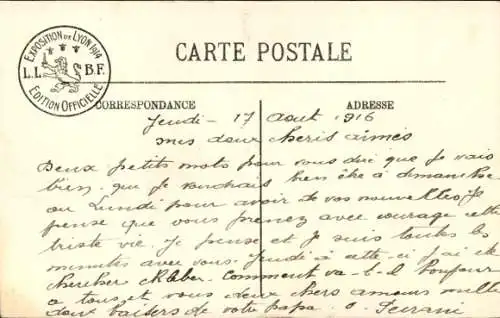 EXPOSITION DE LYON 1914
L.L. B.F.
EDITION OFFICIELLE
CARTE POSTALE
CORRESPONDANCE ADRESSE
Jeudi - 17 Aout 1916
mes deux cheris aimés
Deux petits mots pour vous dire que je vais
bien que je voudrais bien être à dimanche
ou Lundi pour avoir de vos nouvelles, Je
pense que vous prenez avec courage cette
triste vie. Je pense et Je suis toutes les
minutes avec vous. Jeudi à cette
chercher Comment va-t-il bonjour
a tous et vous deux chers amours mille
doux baisers de votre papa.